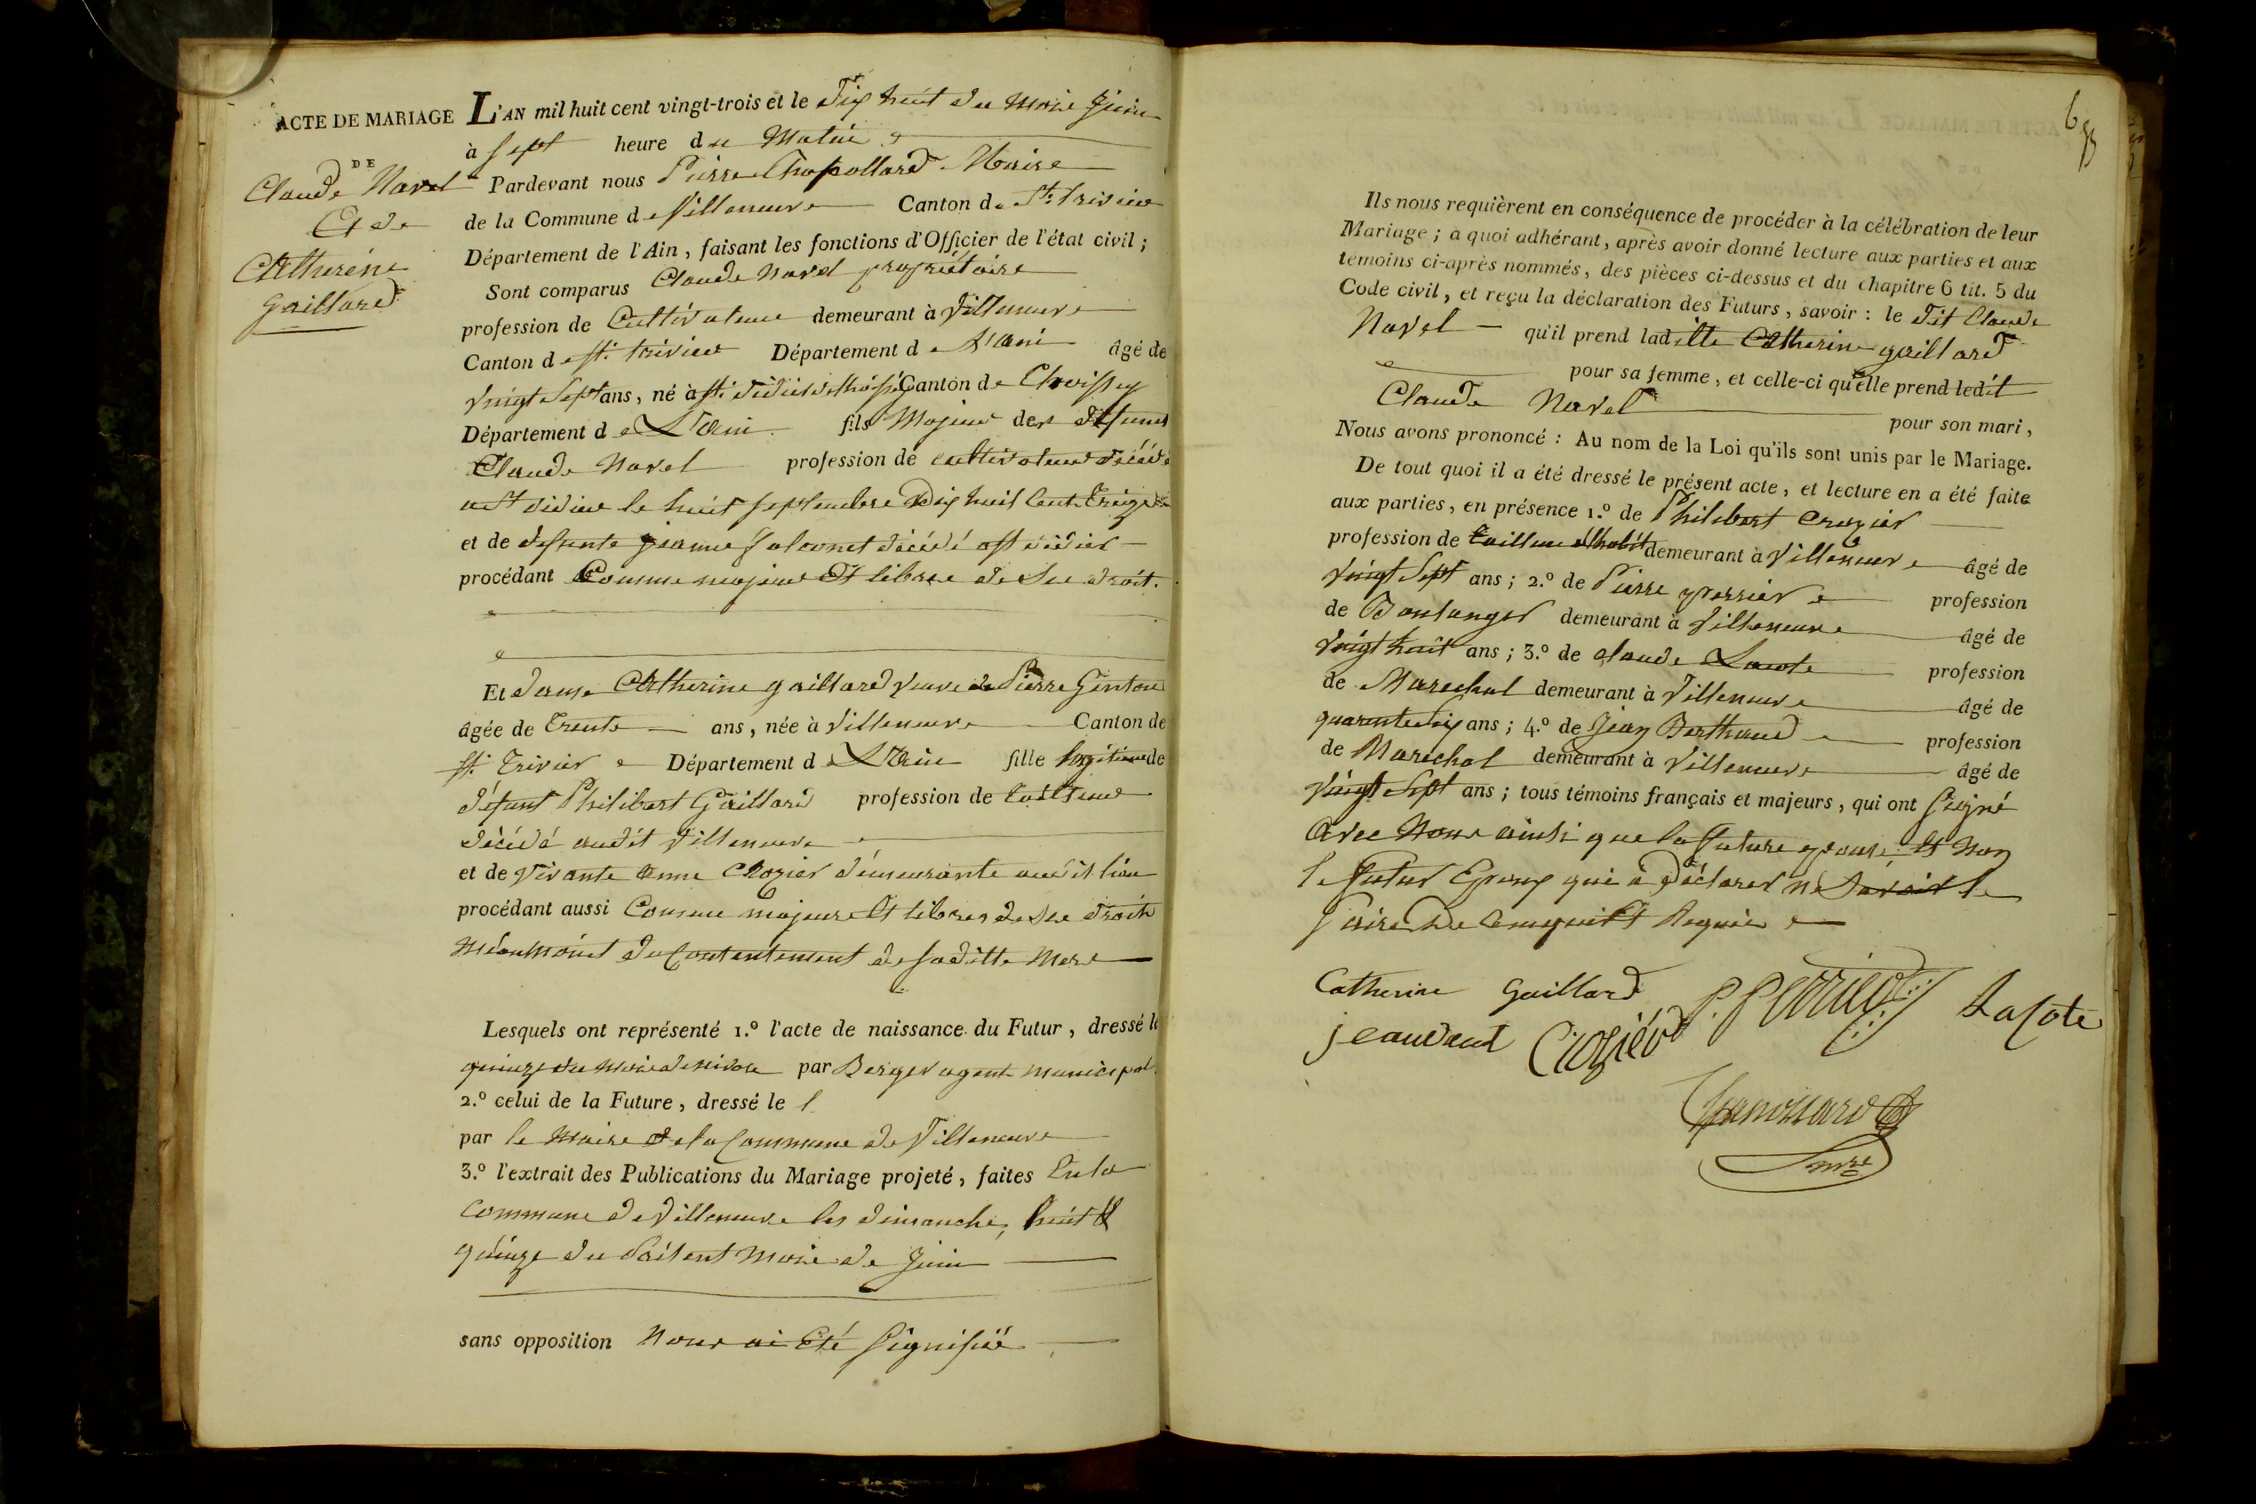 ACTE DE MARIAGE
DE
Claude Navel
Et de
Catherine
gaillard
L'AN mil huit cent vingt-trois et le dix huit du mois Juin
à sept heure du Matin
Pardevant nous Pierre Chapollard Maire
de la Commune de Villeneuve Canton de St. trivier
Département de l'Ain, faisant les fonctions d'Officier de l'état civil;
Sont comparus Claude Navel propriétaire
profession de Cultivateur demeurant à Villeneuve
Canton de St. trivier Département de L'ain âgé de
vingt sept ans, né à St. didier Canton de
Département de L'ain fils Majeur des defunt
Claude Navel profession de cultivateur décédé
a St didier le huit septembre Dix huit Cent Treize
et de defunte jeanne décédé a St didier
procédant Comme majeur Et libre de Ses droit.
Et dame Catherine gaillard veuve de Pierre Genton
âgée de Trente ans, née à Villeneuve Canton de
St. Trivier Département de L'ain fille legitime de
défunt Philibert Gaillard profession de tailleur
décédé audit Villeneuve
et de vivante anne Crozier démeurante audit lieu
procédant aussi Comme majeure Et libre de Ses droits
Méanmoint du Contentement de saditte Mere
Lesquels ont représenté 1.º l'acte de naissance du Futur, dressé le
quinze du mois de nivose par Berger agent municipal.
2.º celui de la Future, dressé le l
par le Maire de la Commune de Villeneuve
3.º l'extrait des Publications du Mariage projeté, faites En la
Commune de Villeneuve les dimanche, huit &
quinze du Présent Mois de Juin
sans opposition Nous ai Eté Signifié
6
Ils nous requièrent en conséquence de procéder à la célébration de leur
Mariage; à quoi adhérant, après avoir donné lecture aux parties et aux
témoins ci-après nommés, des pièces ci-dessus et du chapitre 6 tit. 5 du
Code civil, et reçu la déclaration des Futurs, savoir: le dit Claude
Navel qu'il prend laditte Catherine gaillard
pour sa femme, et celle-ci qu'elle prend ledit
Claude Navel pour son mari,
Nous avons prononcé: Au nom de la Loi qu'ils sont unis par le Mariage.
De tout quoi il a été dressé le présent acte, et lecture en a été faite
aux parties, en présence 1.º de Philibert Crozier
profession de tailleur d'habit demeurant à Villeneuve âgé de
vingt Sept ans; 2.º de Pierre perrier profession
de Boulanger demeurant à Villeneuve âgé de
vingt huit ans; 3.º de claude Lacote profession
de Marechal demeurant à Villeneuve âgé de
quarante six ans; 4.º de Jean Berthaud profession
de Marechal demeurant à Villeneuve âgé de
vingt Sept ans; tous témoins français et majeurs, qui ont Signé
avec Nous ainsi que la future epouse, Et Non
le futur Epoux qui a Déclarer ne Savoir le
faire De Enquit Et Requis
Catherine Gaillard P. Perrier Lacote
Crozier
Chapollard
mre